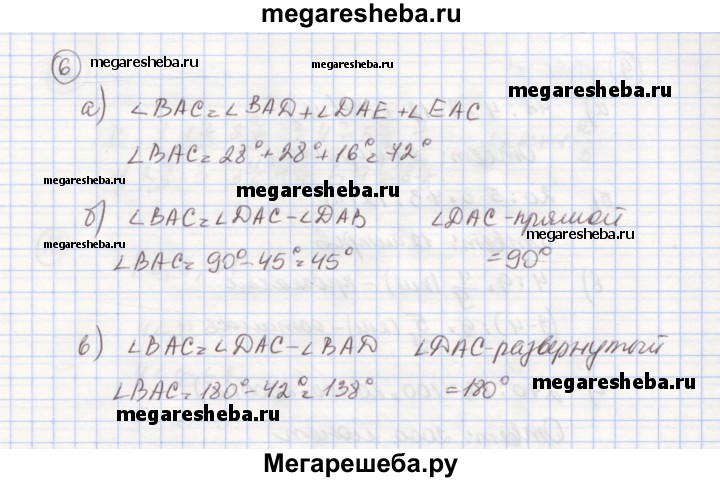 megaresheba.ru
6 megaresheba.ru megaresheba.ru
а) ∠BAC=∠BAD+∠DAE+∠EAC megaresheba.ru
∠BAC=28°+28°+16°=72°
megaresheba.ru megaresheba.ru
б) ∠BAC=∠DAC-∠DAB ∠DAC-прямой
megaresheba.ru
∠BAC=90°-45°=45° =90°
в) ∠BAC=∠DAC-∠BAD ∠DAC-развернутый
∠BAC=180°-42°=138° =180° megaresheba.ru
megaresheba.ru
Мегарешеба.ру